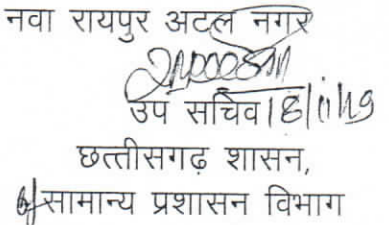 नवा रायपुर अटल नगर
उप सचिव 18/11/19
छत्तीसगढ़ शासन,
सामान्य प्रशासन विभाग